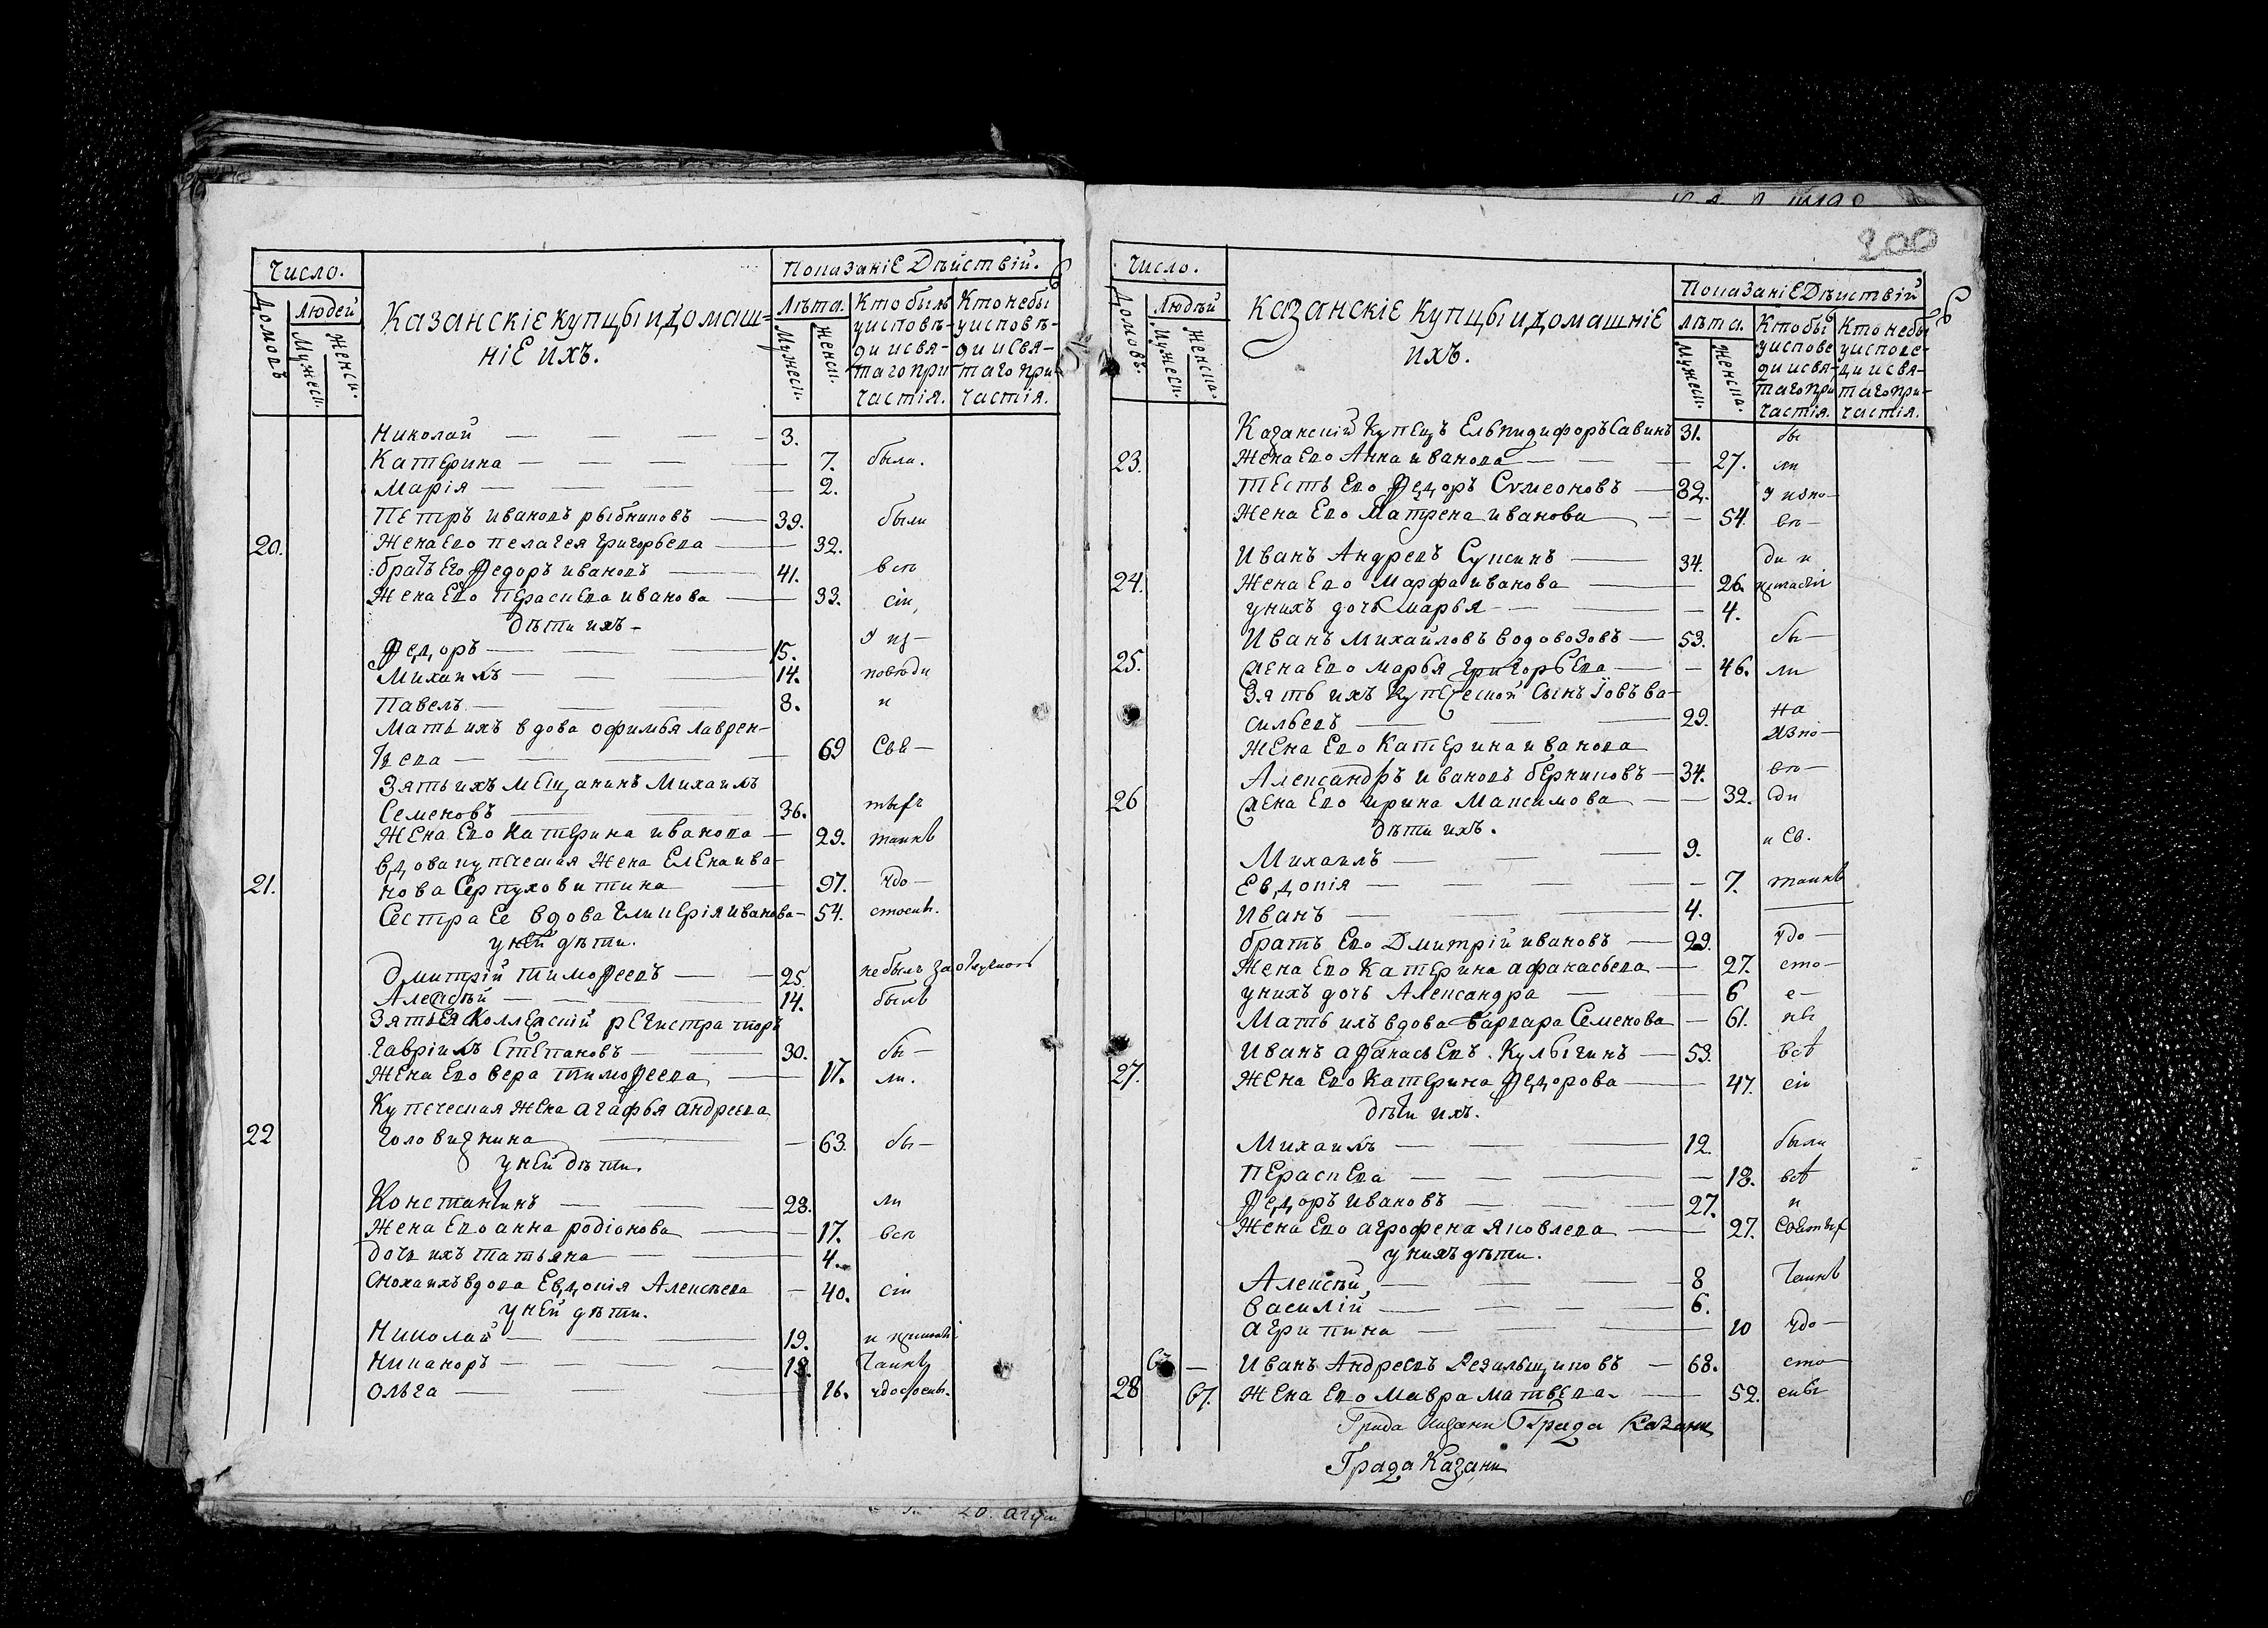 Число.
Показаніе Дѣйствій.
Домовъ
Людей
Мужеск.
Женск.
Казанскіе купцы и домаш=
ніе ихъ.
Лѣта.
Мужеск.
Женск.
Кто былъ
у исповѣ-
ди и свя-
таго при
частія.
Кто небы
у исповѣ-
ди и свя-
таго при-
частія.
Николай 3.
Катерина 7. были.
Марія 2.
Петръ Ивановъ рыбниковъ 39. были
20. Жена Его пелагея григорьева 32.
братъ Его Федоръ Ивановъ 41. всѣ
Жена Его Параскева Иванова 33. сіи
дѣти ихъ-
Федоръ 15. у из-
Михаилъ 14. повѣди
Павелъ 8. и
Мать ихъ вдова офимья лаврен-
тьева 69 Свя-
Зять ихъ мещанинъ Михаилъ
Семеновъ 36. тыхъ
Жена Его Катерина Иванова 29. таинъ
вдова купеческая Жена Елена ива-
21. нова Серпуховитина 97. чдо-
Сестра Ее вдова Гликерія иванова- 54.
у ней дѣти.
Дмитрій тимофеевъ 25. небылъ за отлучкою
Алексѣй 14. былъ
Зять Ея Коллежскій регистраторъ
Гавріилъ Степановъ 30. бы-
Жена Его вера тимофеева 17. ли.
Купеческая Жена агафья андреева
22 головизнина 63. бы-
у ней дѣти.
Константинъ 28. ли
Жена Его анна родіонова 17. всѣ
дочь ихъ татьяна 4.
сноха ихъ вдова Евдокія Алексѣева 40. сіи
у ней дѣти.
Николай 19.
Никаноръ 18. таинъ
Ольга 16.
200
Число.
Показаніе Дѣйствій
Домовъ.
Людѣй
Мужеск.
Женска.
Казанскіе купцы и домашніе
ихъ.
лѣта.
Мужеск.
Женска.
Кто бы
у испове
ди и свя-
таго при
частія.
Кто небы
у испове-
ди и свя-
таго при-
частія.
Казанскій Купецъ Елпидифоръ Савинъ 31. бы
23. Жена Его Анна иванова 27. ли
тесть Его Федоръ Сѵмеоновъ 32. у испо-
Жена Его Матрена иванова 54. вѣ-
Иванъ Андреевъ Сукинъ 34. ди и
24. Жена Его Марфа иванова 26.
у нихъ дочь Марья 4.
Иванъ Михайловъ водовозовъ 53. бы-
25. жена Его марья григорьева 46. ли
Зять ихъ купеческой сынъ Іовъ ва-
сильевъ 29. на
Жена Его Катерина иванова
Александръ Ивановъ беркиновъ 34. вѣ-
26 жена Его ирина Максимова 32. ди
дѣти ихъ.
Михаилъ 9. и Св.
Евдокія 7. таинъ
Иванъ 4.
братъ Его Дмитрій Ивановъ 29. чдо-
Жена Его Катерина афанасьева 27. сто-
у нихъ дочь Александра 6 е-
Мать ихъ вдова варвара Семенова 61.
Иванъ афанасьевъ Кулыгинъ 53. всѣ
27. Жена Его Катерина Федорова 47. сіи
дѣти ихъ.
Михаилъ 12. были
Параскева 18. всѣ
Федоръ Ивановъ 27. и
Жена Его агрофена яковлева 27.
у нихъ дѣти.
Алексѣй 8 таинъ
василій 6.
агрипина 10 чдо-
Иванъ Андреевъ Резальщиковъ 68. сто-
28 67. Жена Его Мавра Матвѣева 52.
Града Казани Града Казани
Града Казани